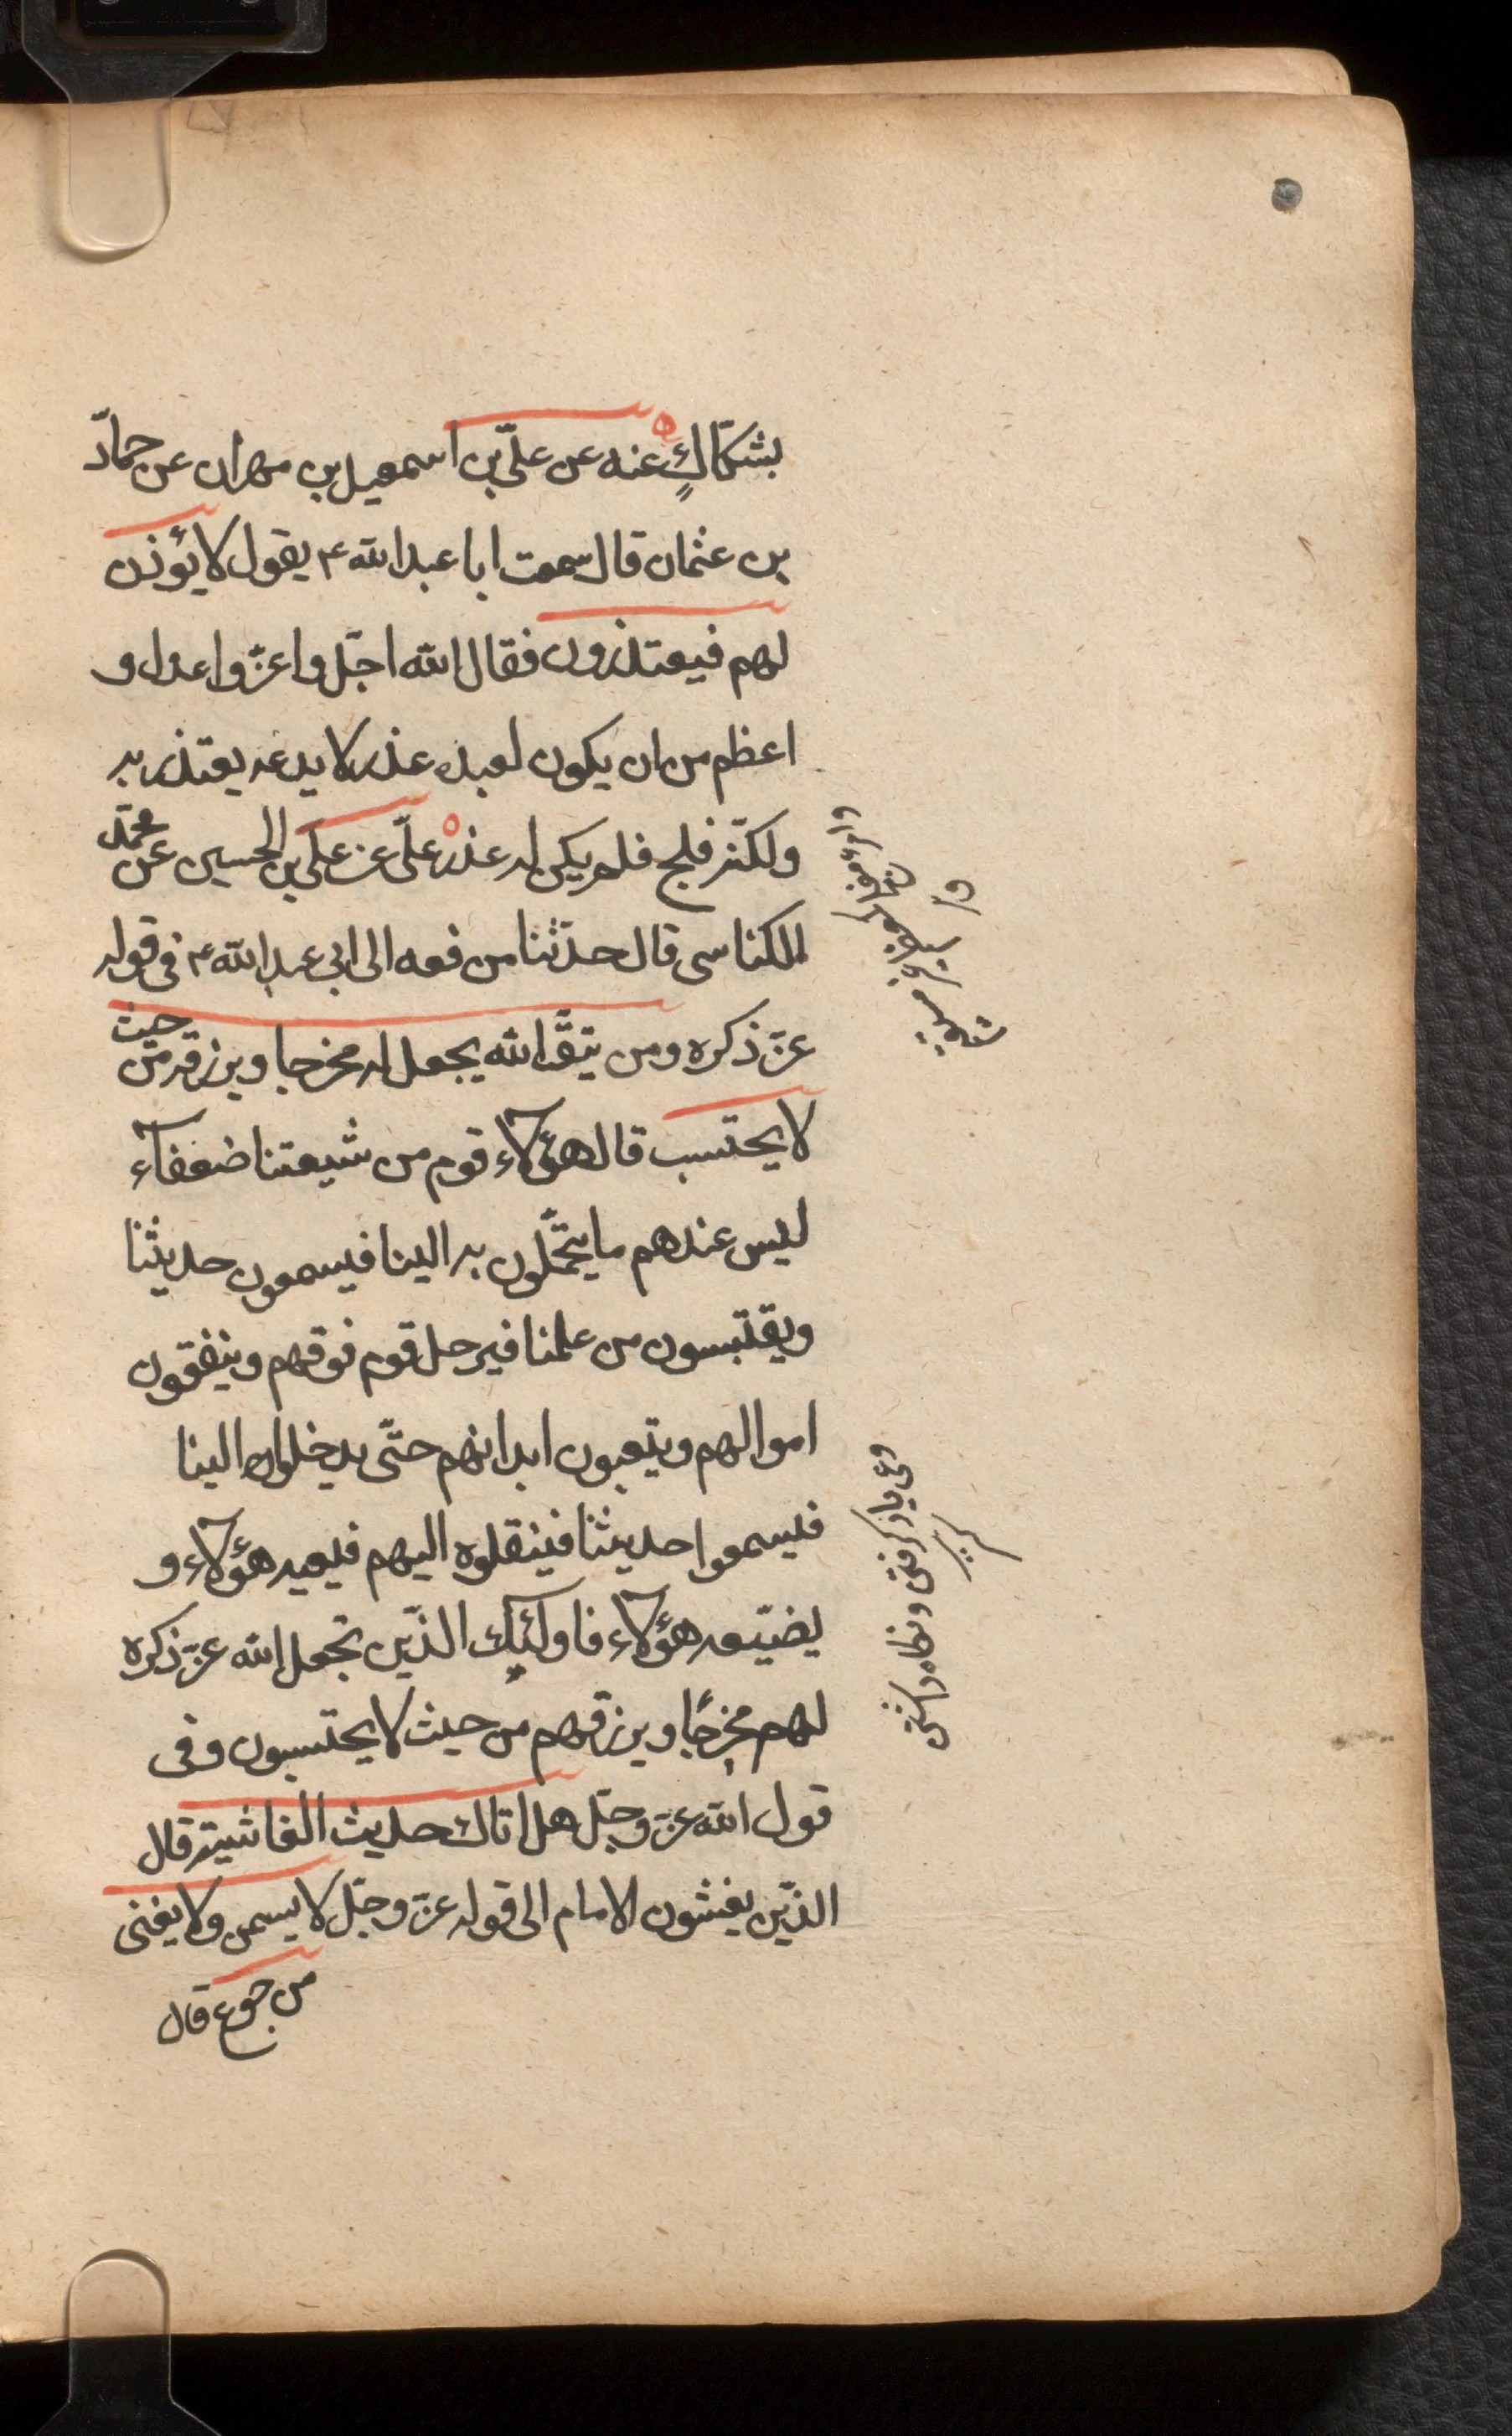 بشكّاكٍ عنه عن علىّ بن اسمعيل بن مهران عن حمّاد
بن عثمان قال سمعت ابا عبد الله ع يقول لا يؤذن
لهم فيعتذرون فقال الله اجلّ واعزّ واعدل و
اعظم من ان يكون لعبده عذر لا يدعه يعتذر به
ولكنّه فلج فلم يكن له عذر علىّ عن على بن الحسين عن محمّد
الكناسى قال حدّثنا من رفعه الى ابى عبد الله ع فى قوله
عزّ ذكره ومن يتّق الله يجعل له مخرجا ويرزقه من حيث
لا يحتسب قال هؤلاء قوم من شيعتنا ضعفاء
ليس عندهم ما يتحمّلون به الينا فيسمعون حديثنا
ويقتبسون من علمنا فيرحل قوم فوقهم وينفقون
اموالهم ويتعبون ابدانهم حتّى يدخلوا الينا
فيسمعوا حديثنا فينقلوه اليهم فيعيه هؤلاء و
يضيّعه هؤلاء فاولئك الذّين يجعل الله عزّ ذكره
لهم مخرجًا ويرزقهم من حيث لا يحتسبون وفى
قول الله عزّ وجلّ هل اتاك حديث الغاشية قال
الذّين يغشون الامام الى قوله عزّ وجلّ لا يسمن ولا يغنى
من جوع قال
وعى ياد كرفتن ونكاه داشتن